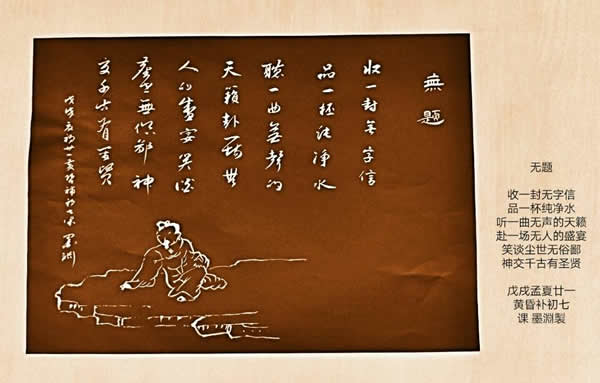 無题
收一封无字信
品一杯纯净水
聽一曲無聲的
天籁赴一场无
人的盛宴笑谈
尘世無俗鄙神
交千古有圣贤
戊戌孟夏廿一黄昏补初七课 墨渊
无题
收一封无字信
品一杯纯净水
听一曲无声的天籁
赴一场无人的盛宴
笑谈尘世无俗鄙
神交千古有圣贤
戊戌孟夏廿一
黄昏补初七
课 墨淵製